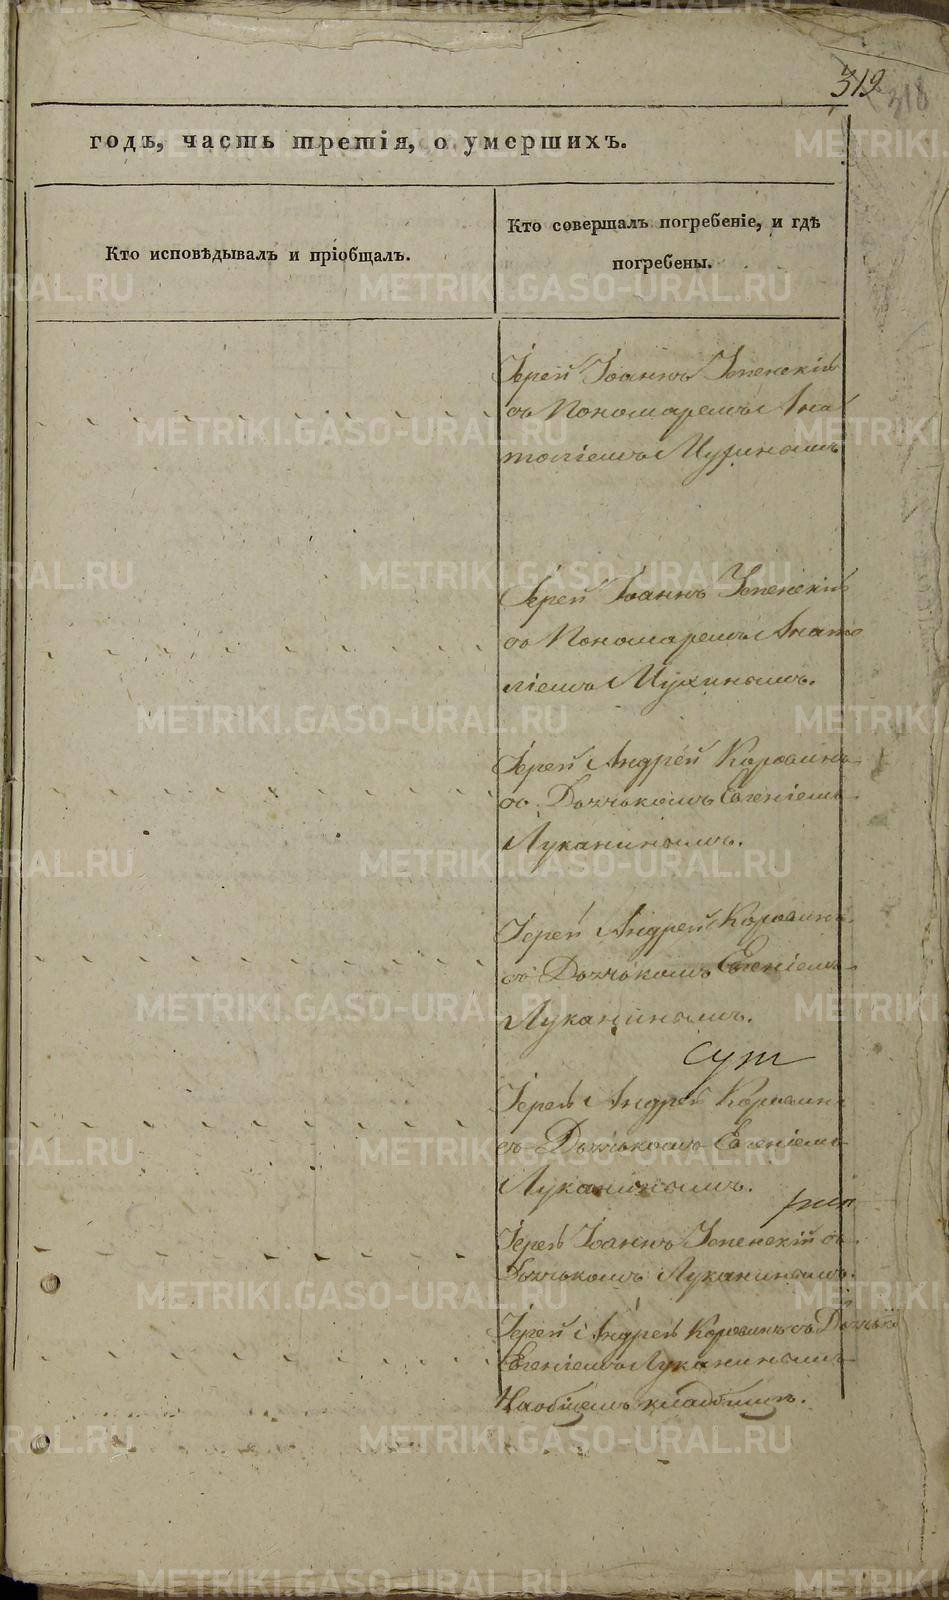 319
318
годъ, часть третія, о умершихъ.
Кто исповѣдывалъ и пріобщалъ.
Кто совершалъ погребеніе, и гдѣ
погребены.
Іерей Іоаннъ Успенскій
съ Пономаремъ Ана
толіемъ Мухинымъ
Іерей Іоаннъ Успенскій
съ Пономаремъ Анато
ліемъ Мухинымъ.
Іерей Андрей Коровинъ
съ Дьячькомъ Евгеніемъ
Луканинымъ.
Іерей Андрей Коровинъ
съ Дьячькомъ Евгеніемъ
Луканинымъ.
сут
Іерей Андрей Коровинъ
съ Дьячькомъ Евгеніемъ
Луканинымъ.
Іерей Іоаннъ Успенскій съ
Дьячькомъ Луканинымъ.
Іерей Андрей Коровинъ съ Дьячько
Евгеніемъ Луканинымъ
На общемъ кладбищѣ.
METRIKI.GASO-URAL.RU